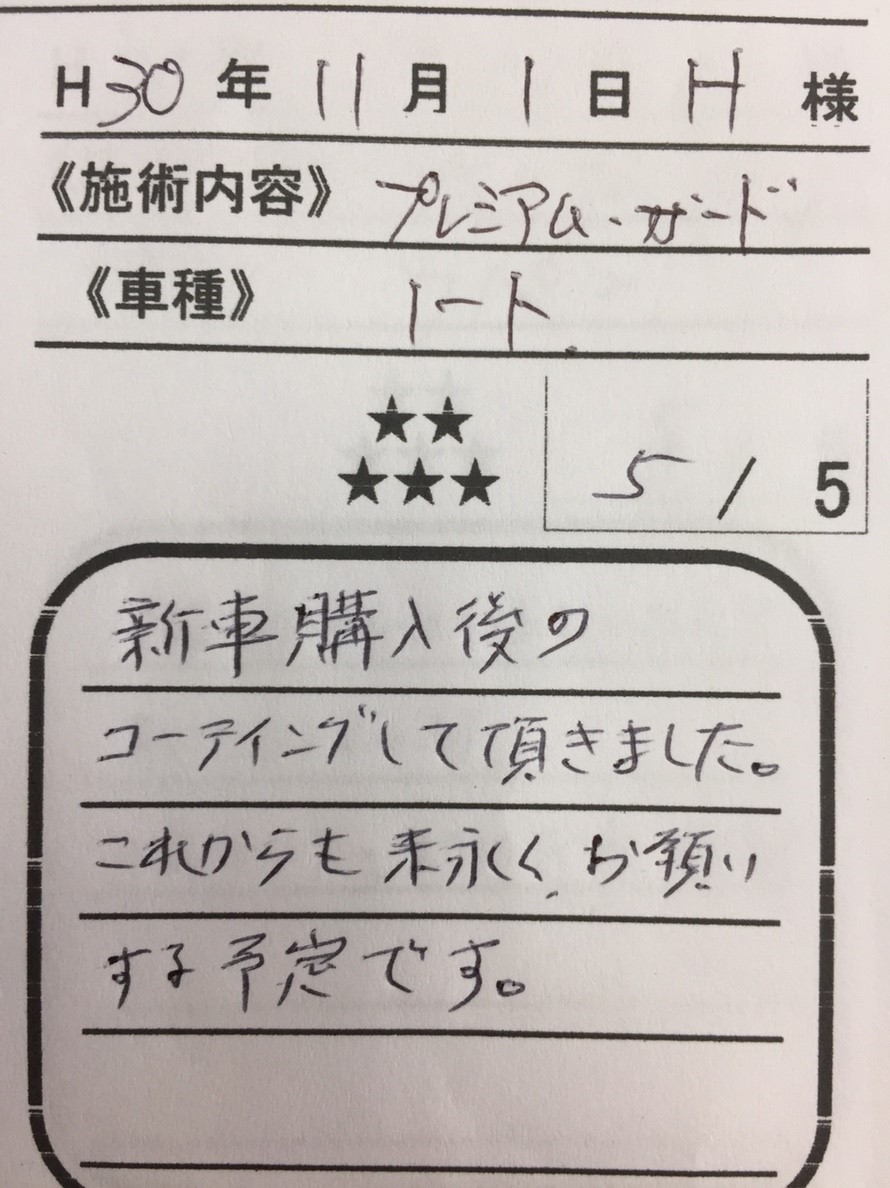 H30年11月1日 H 様
《施術内容》プレミアム・ガード
《車種》トート
★★
★★★
5 / 5
新車購入後の
コーティングして頂きました。
これからも末永く、お願い
する予定です。